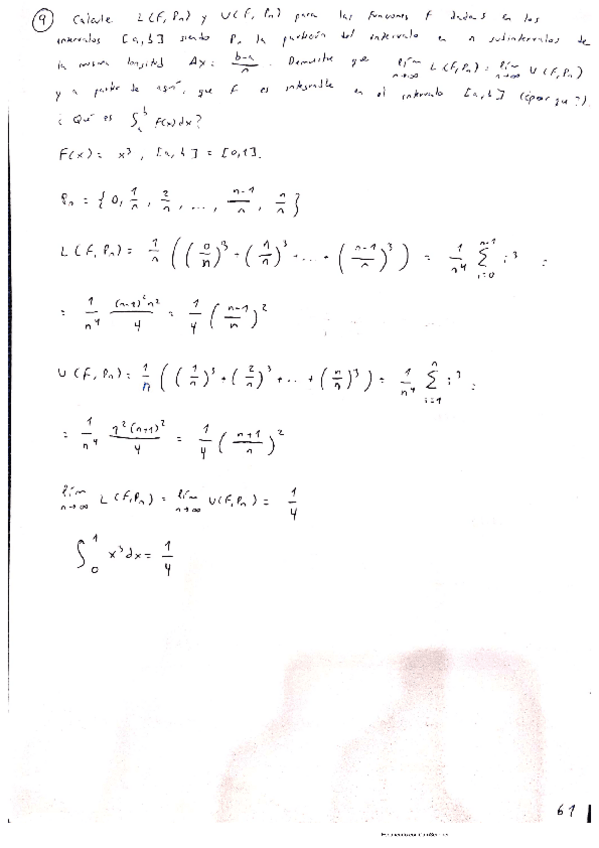 9 Calcule L(F, Pn) y U(F, Pn) para las funciones F dadas en los
intervalos [a, b] siendo Pn la partición del intervalo en n subintervalos de
la misma longitud Δx = \frac{b-a}{n}. Demuestre que lím_{n→∞} L(F, Pn) = lím_{n→∞} U(F, Pn)
y a partir de aquí, que F es integrable en el intervalo [a, b] (¿por qué?).
¿Qué es ∫_a^b F(x)dx?
F(x) = x³, [a, b] = [0, 1].
Pn = {0, \frac{1}{n}, \frac{2}{n}, ..., \frac{n-1}{n}, \frac{n}{n}}
L(F, Pn) = \frac{1}{n} ((\frac{0}{n})³ + (\frac{1}{n})³ + ... + (\frac{n-1}{n})³) = \frac{1}{n⁴} \sum_{i=0}^{n-1} i³ =
= \frac{1}{n⁴} \frac{(n-1)² n²}{4} = \frac{1}{4} (\frac{n-1}{n})²
U(F, Pn) = \frac{1}{n} ((\frac{1}{n})³ + (\frac{2}{n})³ + ... + (\frac{n}{n})³) = \frac{1}{n⁴} \sum_{i=1}^{n} i³ =
= \frac{1}{n⁴} \frac{n² (n+1)²}{4} = \frac{1}{4} (\frac{n+1}{n})²
lím_{n→∞} L(F, Pn) = lím_{n→∞} U(F, Pn) = \frac{1}{4}
∫_0^1 x³dx = \frac{1}{4}
61